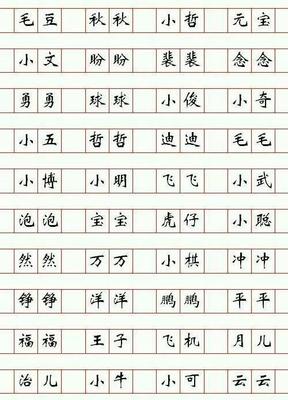 毛豆 秋秋 小哲 元宝
小文 盼盼 裴裴 念念
勇勇 球球 小俊 小奇
小五 哲哲 迪迪 毛毛
小博 小明 飞飞 小武
泡泡 宝宝 虎仔 小聪
然然 万万 小棋 冲冲
铮铮 洋洋 鹏鹏 平平
福福 王子 飞机 月儿
治儿 小牛 小可 云云